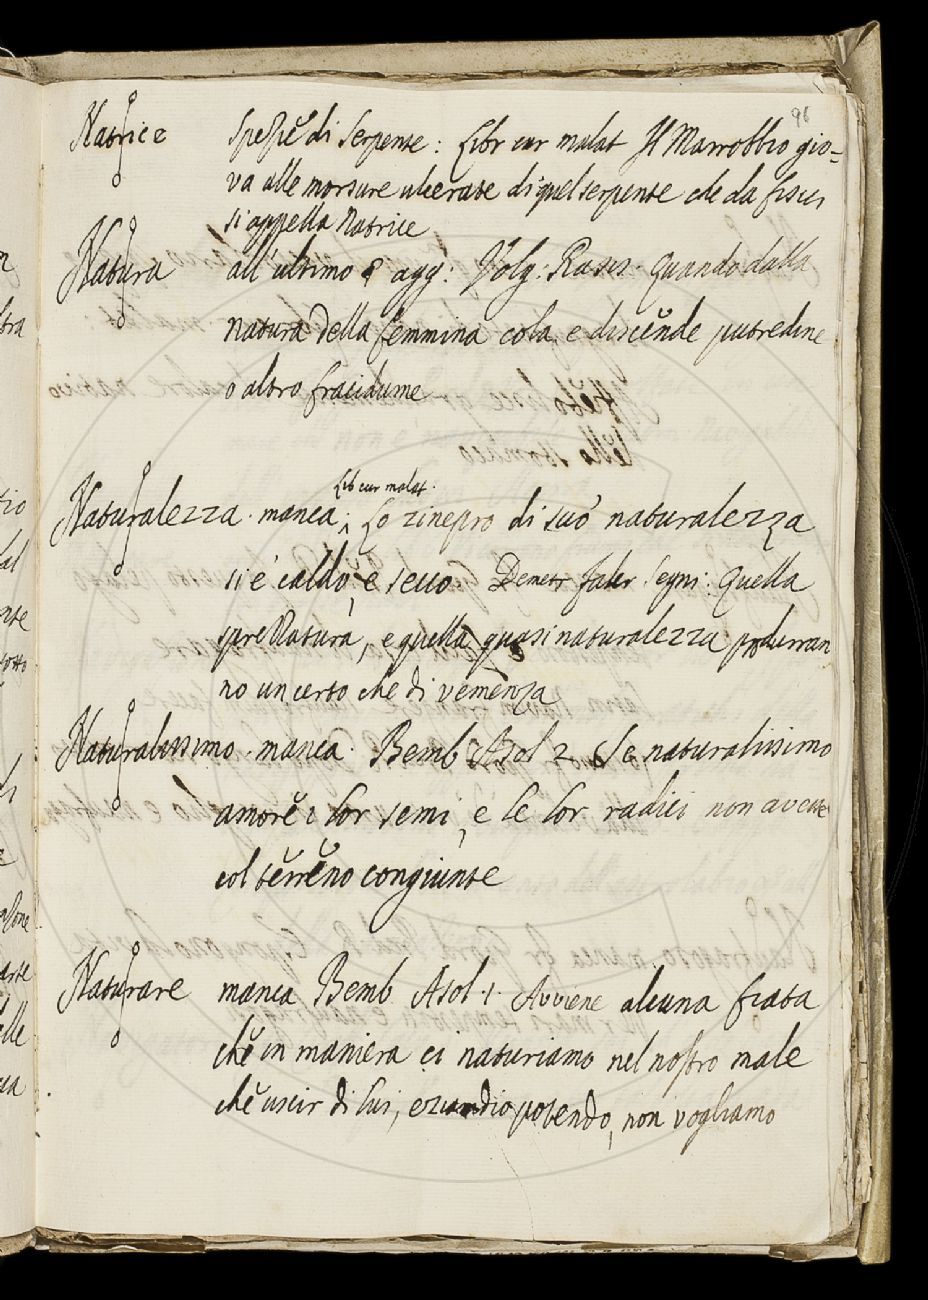 96
Natrice Spezie di Serpente: Libr cur malat Il Marrobbio gio=
va alle morsure ulcerate di quel serpente che da fisici
si appella Natrice
Natura all'ultimo § agg: Volg: Rases. Quando dalla
natura della femmina cola, e discende putredine
o altro fracidume
Lib cur malat.
Naturalezza. manca. Lo zinepro di suo naturalezza
si è caldo, e secco Demetr faler Segni: Quella
pre Natura, e quella quasi naturalezza produrran
no un certo che di vemenza
Naturalissimo. manca. Bemb Asol 2. Se naturalissimo
amore i lor semi, e le lor radici non avesse
col terreno congiunte
Naturare manca Bemb Asol. 1. Avviene alcuna fiata
che in maniera ci naturiamo nel nostro male
che uscir di lui, eziandio potendo, non vogliamo